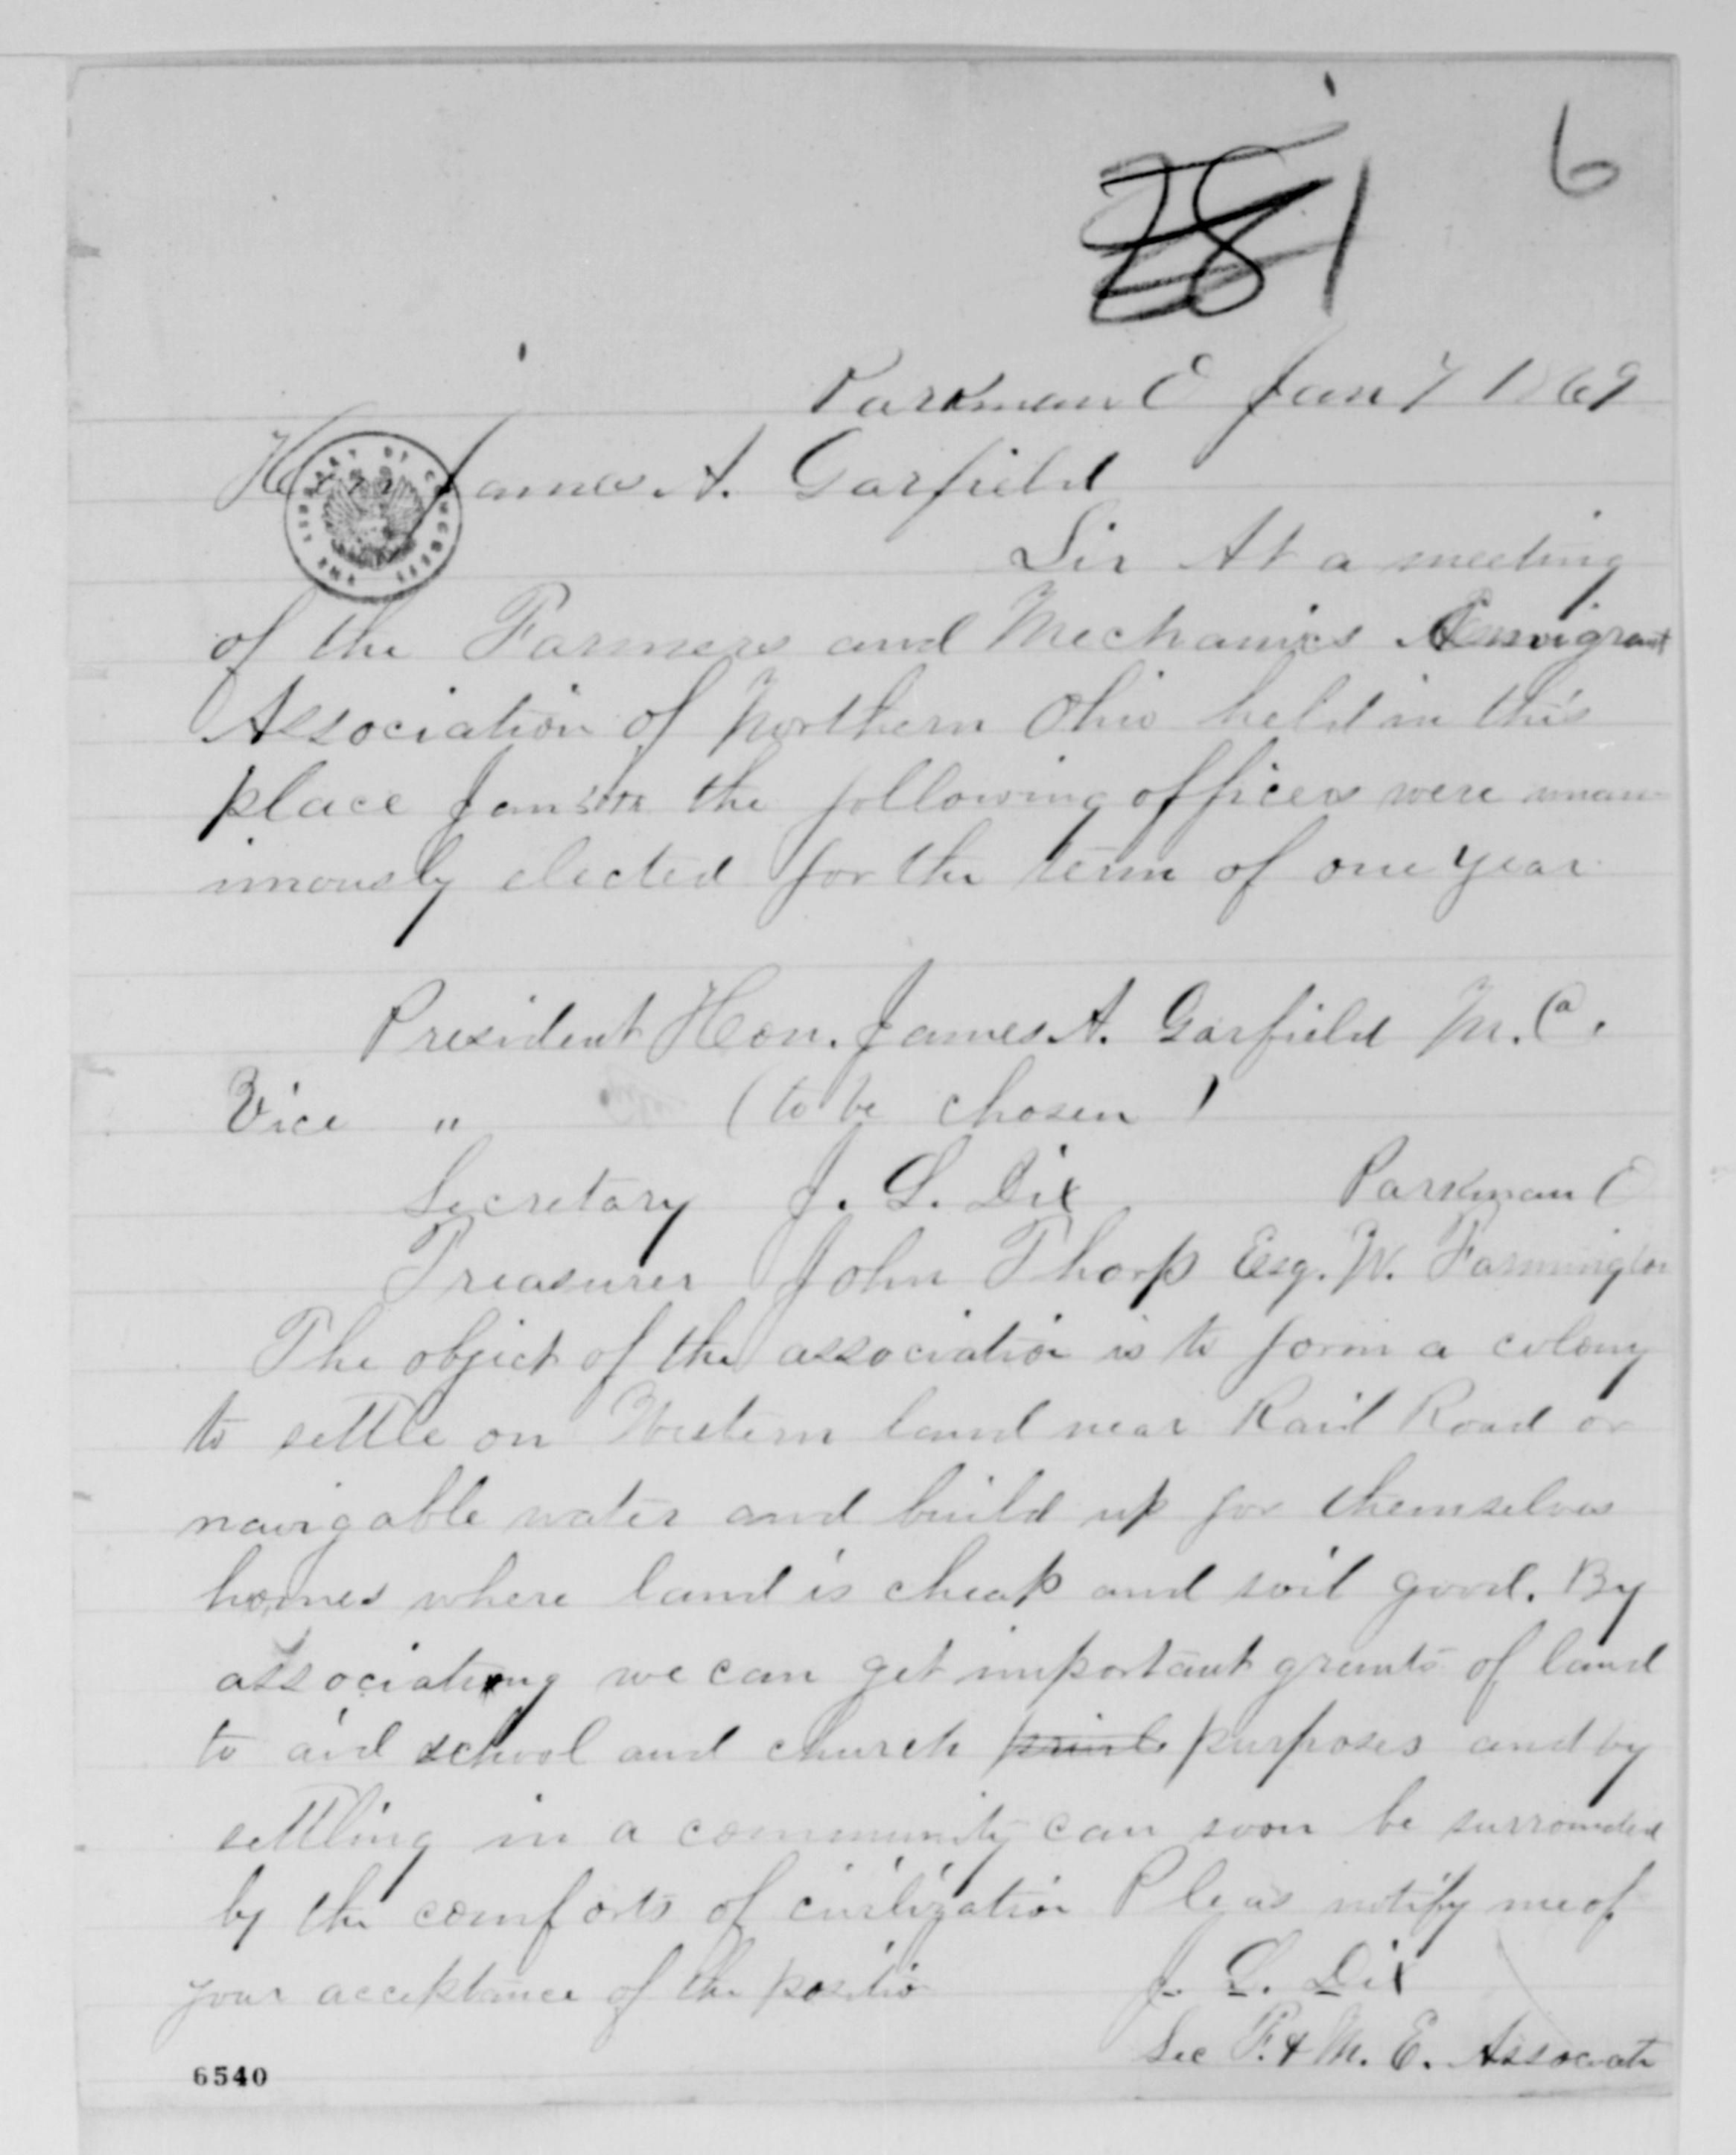 6
281
Parkman O Jan 7 1869
Hon James A. Garfield
Sir At a meeting
of the Farmers and Mechanics Emigrant
Association of Northern Ohio held in this
place Jan 5th the following officers were unan
imously elected for the term of one year
President Hon. James A. Garfield M. C.
Vice " (to be chosen)
Secretary J. L. Dix Parkman O
Treasurer John Thorp Esq. W. Farmington
The object of the association is to form a colony
to settle on Western land near Rail Road or
navigable water and build up for themselves
homes where land is cheap and soil good. By
associating we can get important grants of land
to aid school and church purposes and by
settling in a community can soon be surrounded
by the comforts of civilization Pleas notify me of
your acceptance of the positio
J. L. Dix
Sec F. & M. E. Associati
THE LIBRARY OF CONGRESS
6540